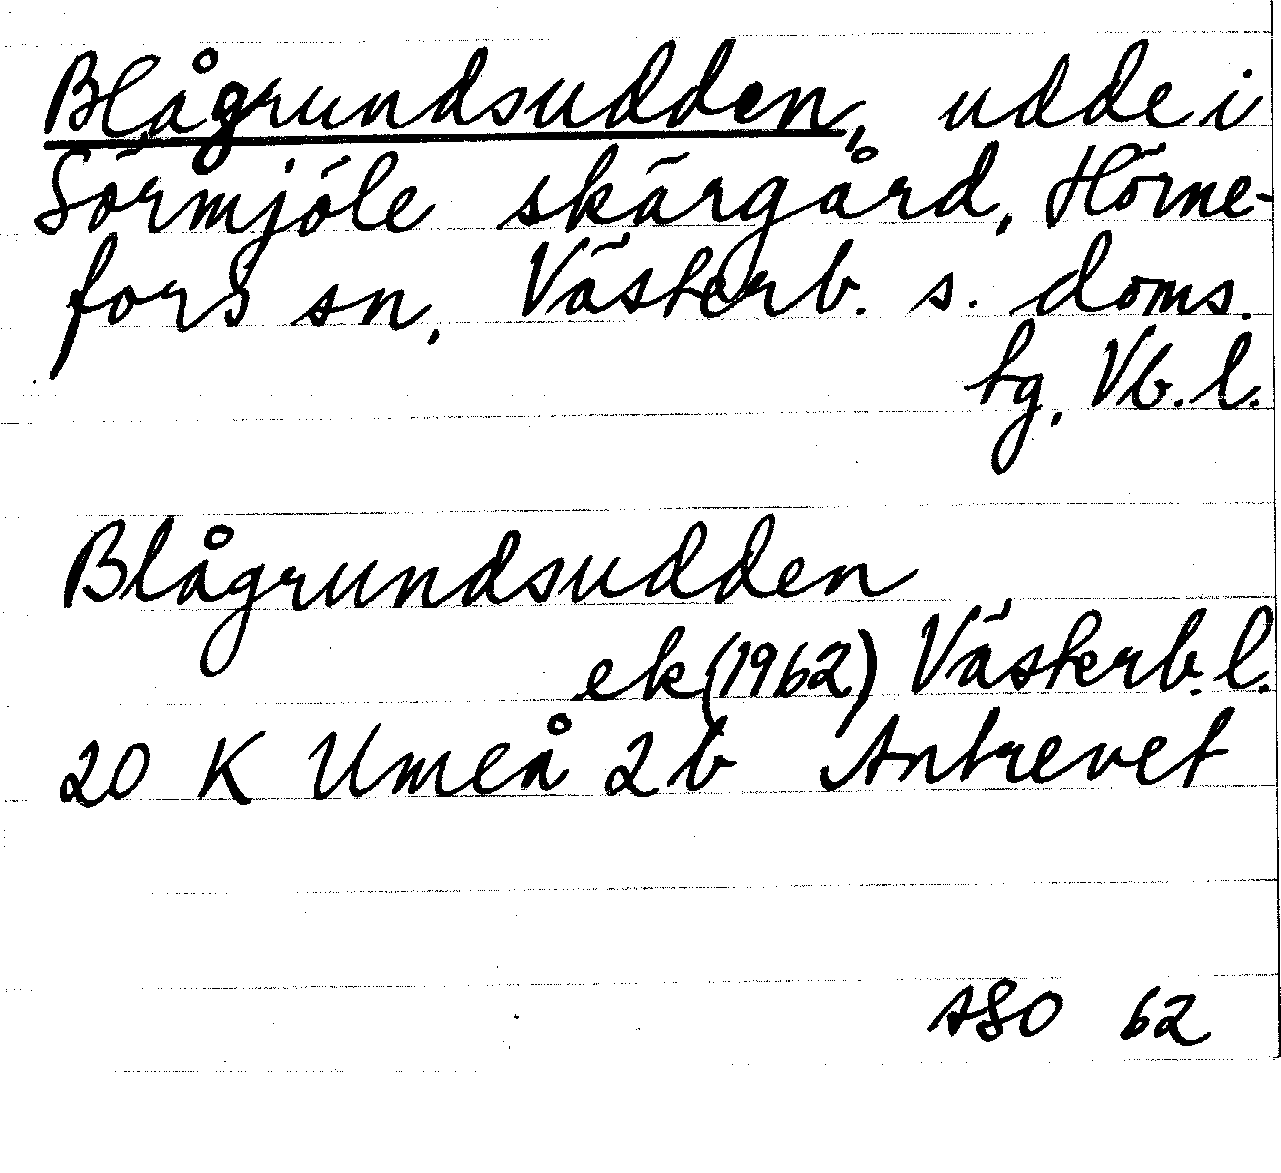 Blågrundsudden, udde i
Sörmjöle skärgård, Hörne-
fors sn, Västerb. s. doms.
tg, Vb. l.
Blågrundsudden
ek (1962) Västerb. l.
20 K Umeå 2 b Antrevet
ASO 62